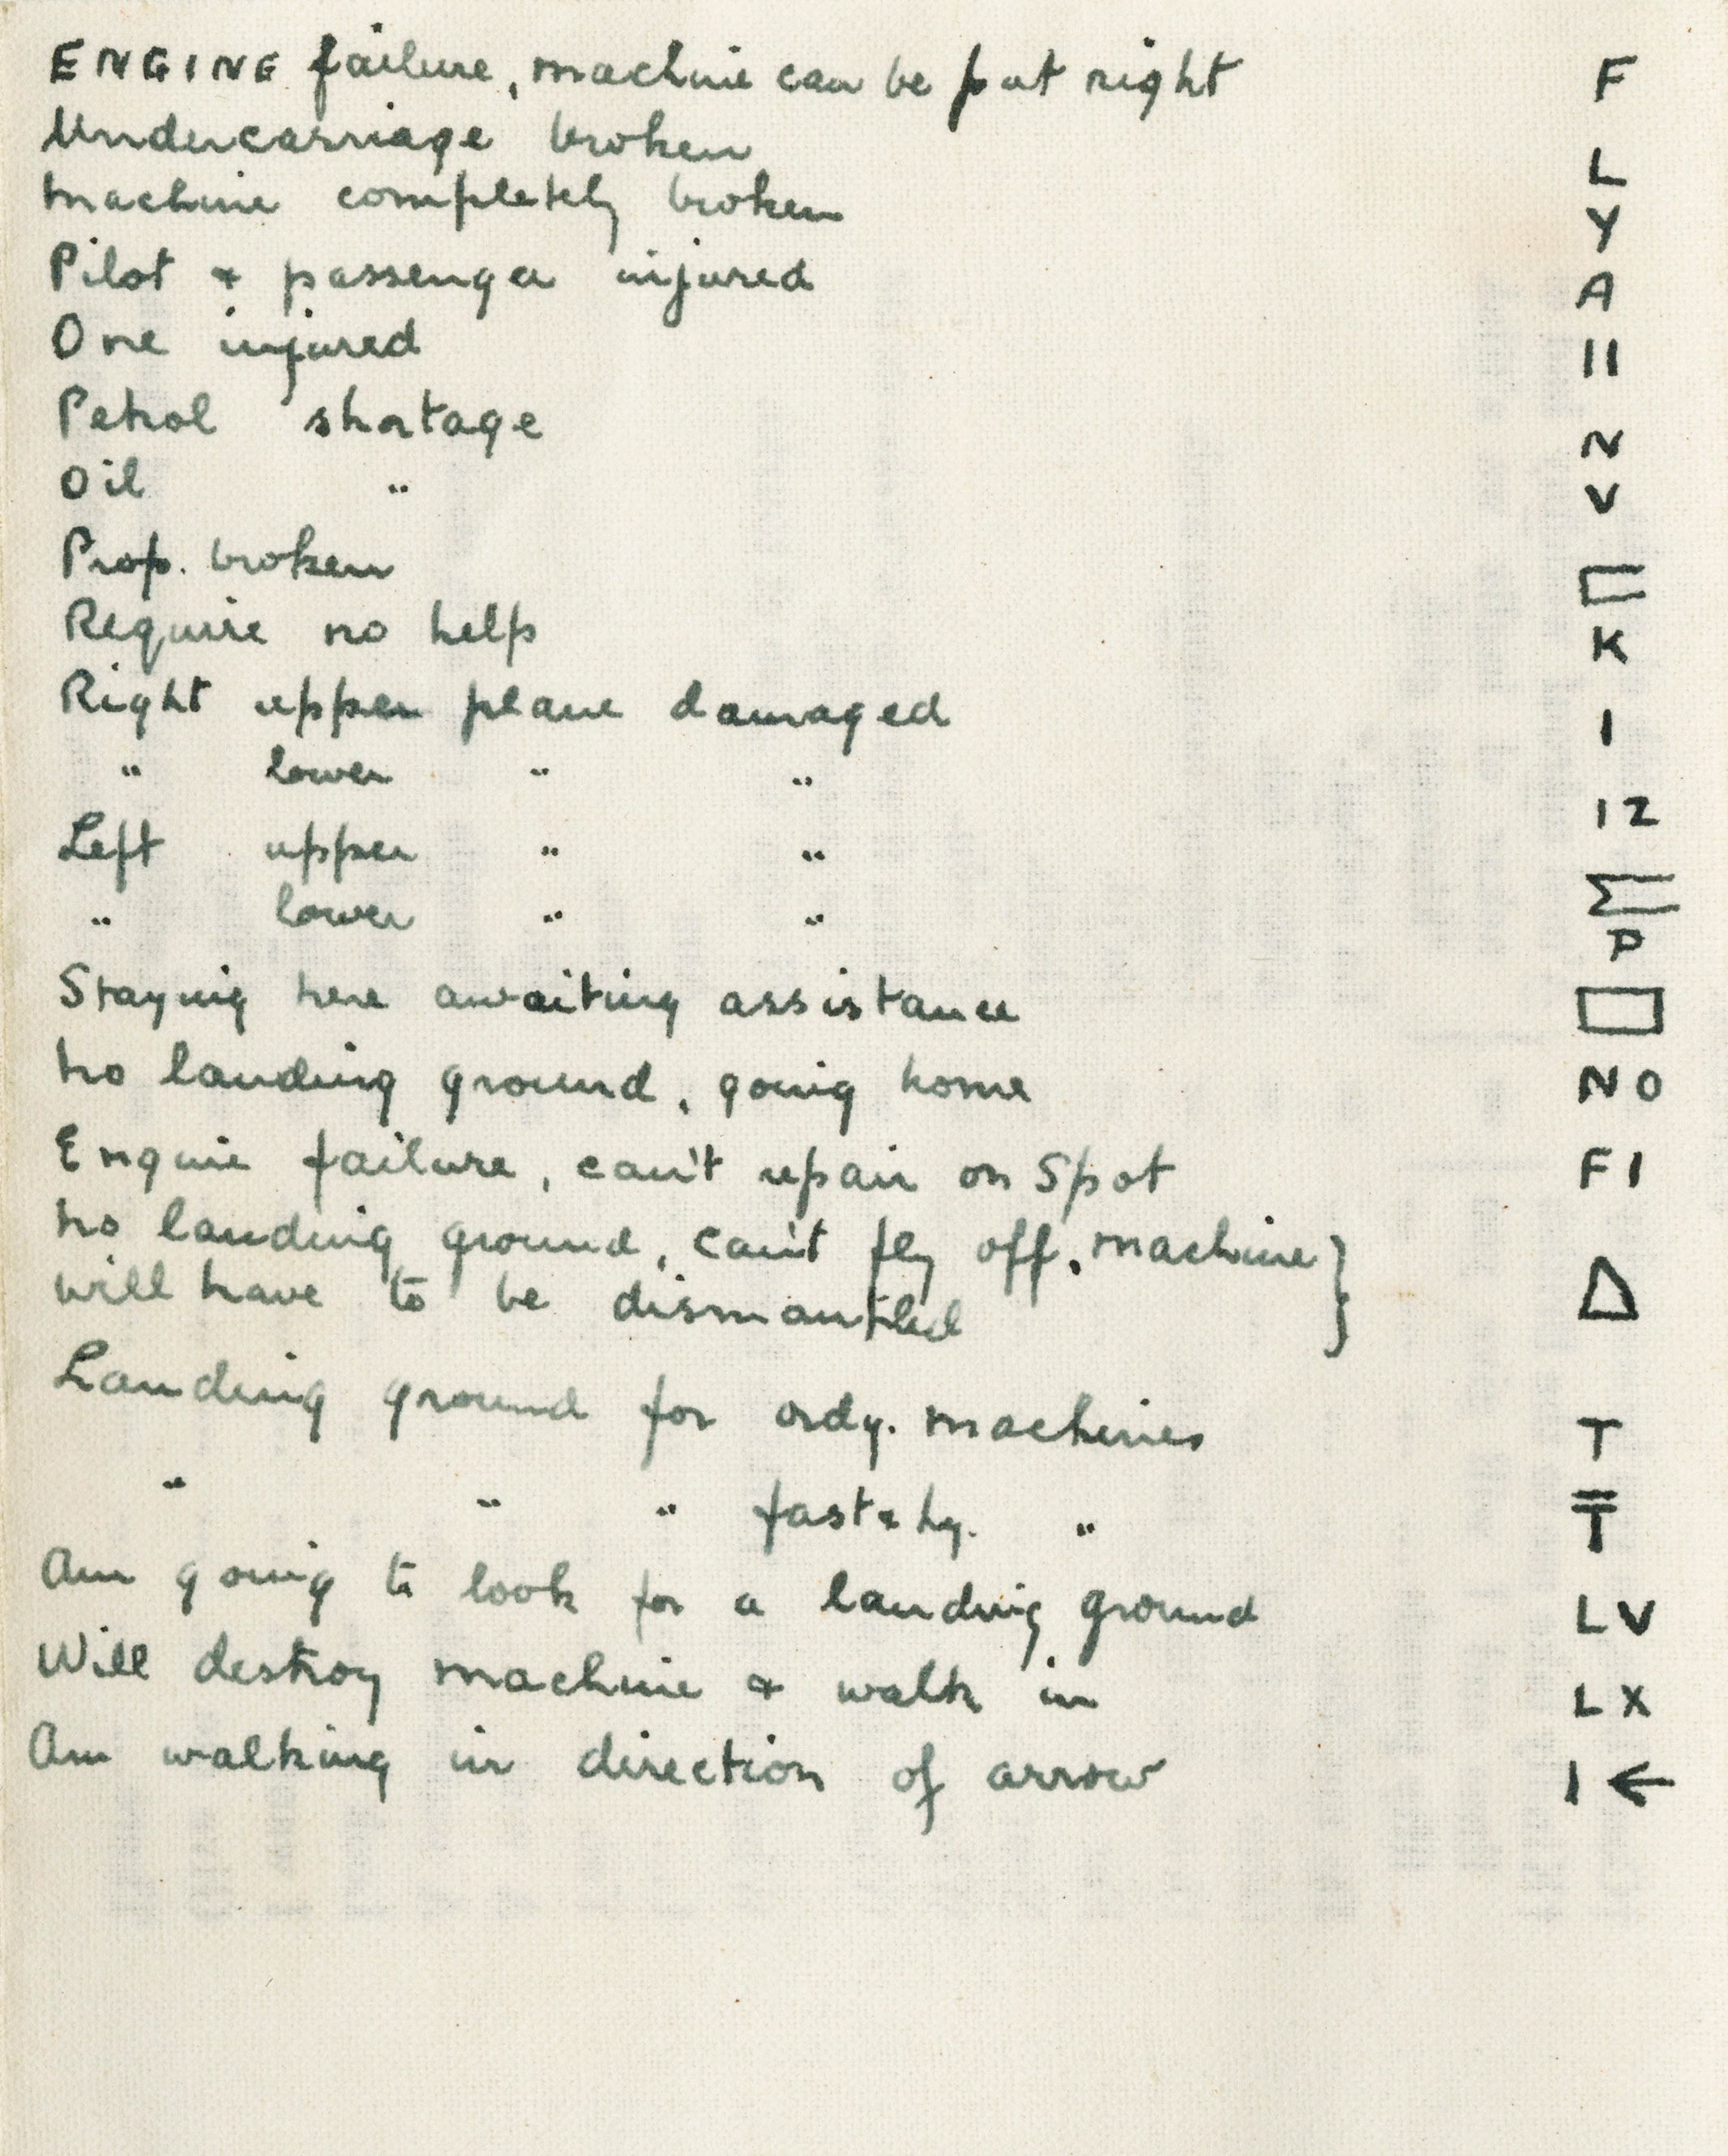 ENGINE failure, machine can be put right F
Undercarriage broken L
Machine completely broken Y
Pilot & passenger injured A
One injured II
Petrol shortage N
Oil " V
Prop. broken
Require no help K
Right upper plane damaged I
" lower " " 12
Left upper " " Σ
" lower " " P
Staying here awaiting assistance
No landing ground, going home NO
Engine failure, can't repair on Spot F1
No landing ground, can't fly off, machine }
will have to be dismantled Δ
Landing ground for ordy. machines T
" " " fast & hy. " T
Am going to look for a landing ground LV
Will destroy machine & walk in LX
Am walking in direction of arrow I ←